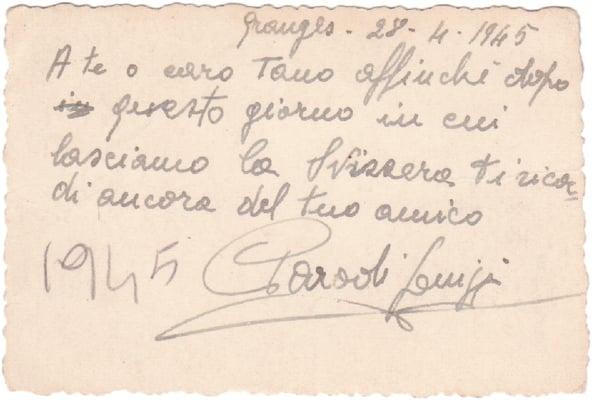 Granges - 28 - 4 - 1945
A te o caro Tano affinchè dopo
in questo giorno in cui
lasciamo la Svizzera ti ricor-
di ancora del tuo amico
1945 Parodi Luigi